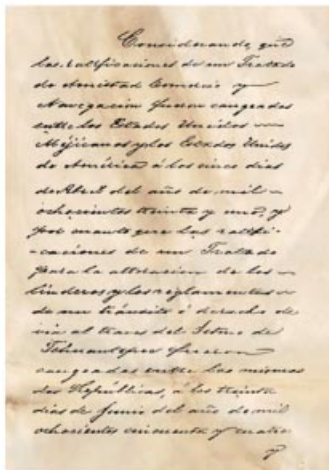 Considerando, que
las ratificaciones de un Tratado
de Amistad Comercio y
Navegación fueron cangeadas
entre los Estados Unidos
Mejicanos y los Estados Unidos
de América á los cinco dias
de Abril del año de mil
ochocientos treinta y uno, y
por cuanto que las ratifi-
-caciones de un Tratado
para la alteracion de los
linderos y los reglamentos
de un tránsito ó derecho de
via al traves del Istmo de
Tehuantepec fueron
cangeadas entre las mismas
dos Repúblicas, á los treinta
dias de Junio del año de mil
ochocientos cincuenta y cuatro
y